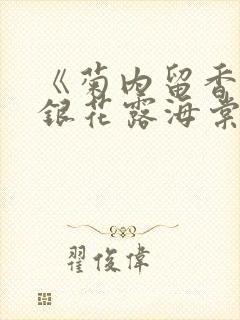 《菊内留香
銀花露海棠
翟俊偉